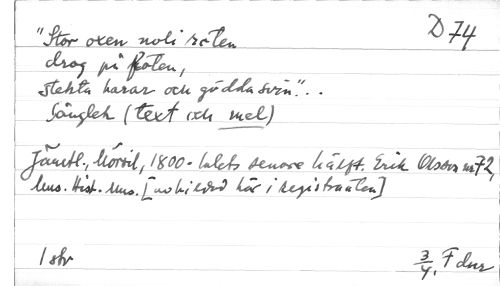 D 74
"Stor oxen noli roten
drog på foten,
stekta harar och gödda svin"...
Sånglek (text och mel)
Jämtl., Mörsil, 1800-talets senare hälft. Erik Olsson nr 72,
Mus. Hist. Mus. [avbildad här i registranten]
1 str
3/4, F dur